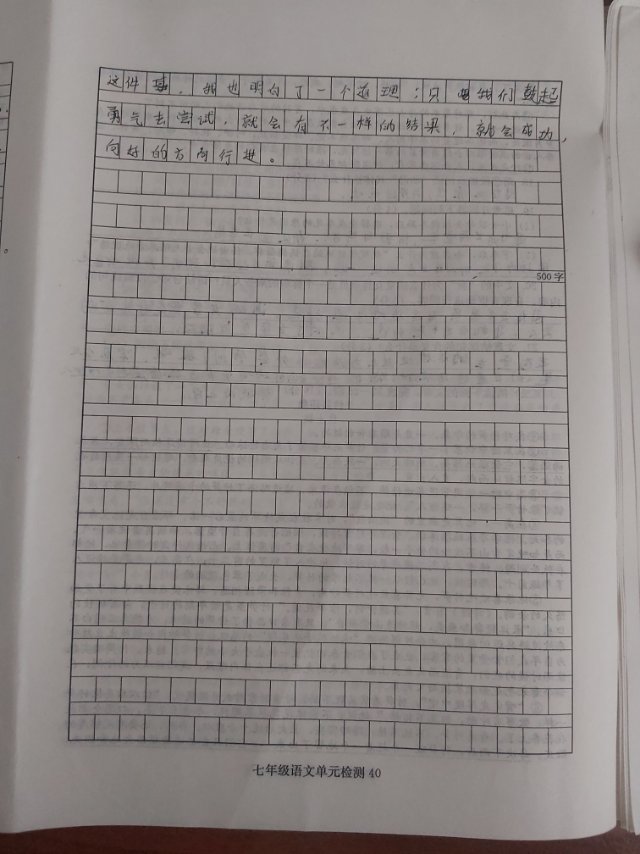 这件事，我也明白了一个道理：只要我们鼓起
勇气去尝试，就会有不一样的结果，就会成功，
向好的方向行进。
500字
七年级语文单元检测 40